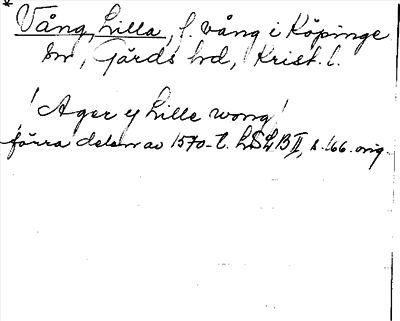 * Vång, Lilla, f. vång i Köpinge
sn, Gärds hd, Krist. l.
! Ager y Lille wong!
förra delen av 1570-t. LSLB II, s. 166. orig.